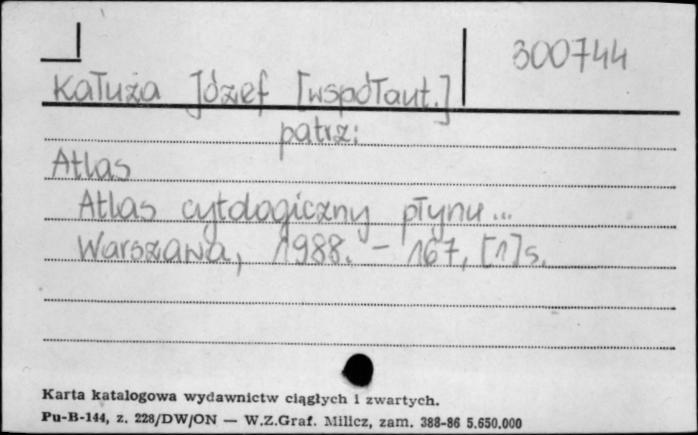 300744
Kałuża Józef [współaut.]
patrz:
Atlas
Atlas cytologiczny płynu...
Warszawa, 1988. - 167, [1] s.
Karta katalogowa wydawnictw ciągłych i zwartych.
Pu-B-144, z. 228/DW/ON — W.Z.Graf. Milicz, zam. 388-86 5.650.000